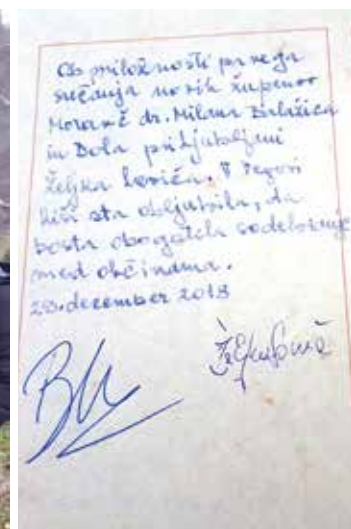 Ob priložnosti prvega
srečanja novih županov
Moravč dr. Milana Balažica
in Dola pri Ljubljani
Željka Savića. V Vegovi
hiši sta obljubila, da
bosta obogatila sodelovanje
med občinama.
28. december 2018